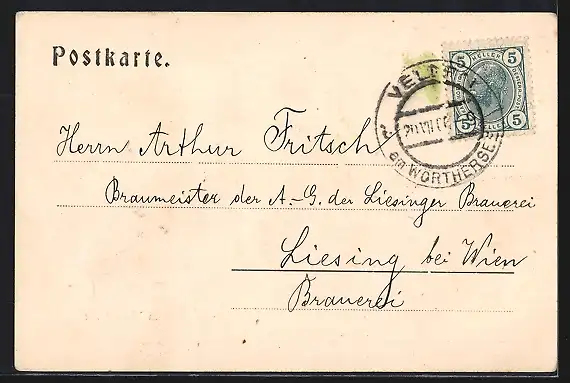 Postkarte.
5 HELLER 5
5 5
VELDEN
am WÖRTHERSEE
Herrn Arthur Fritsch
Braumeister der A.-G. der Liesinger Brauerei
Liesing bei Wien
Brauerei